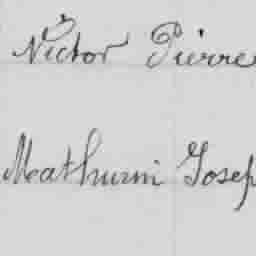 Victor Pierre
Mathurin Josep